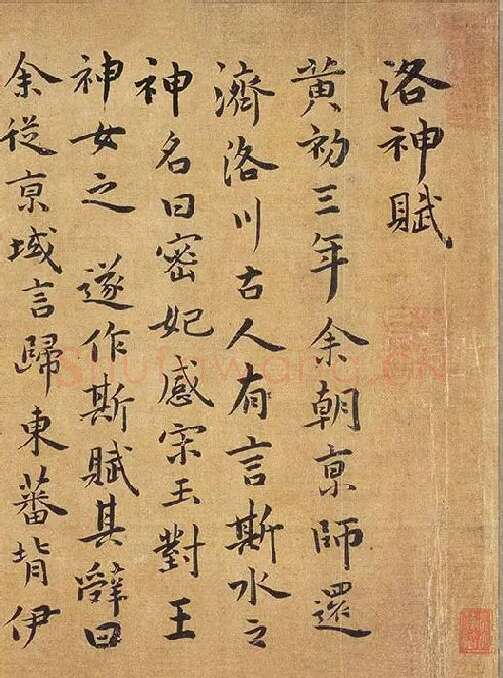 洛神賦
黄初三年余朝京師還
濟洛川古人有言斯水之
神名曰密妃感宋玉對王
神女之 遂作斯賦其辭曰
余從京域言歸東蕃背伊
Shufawang.CN